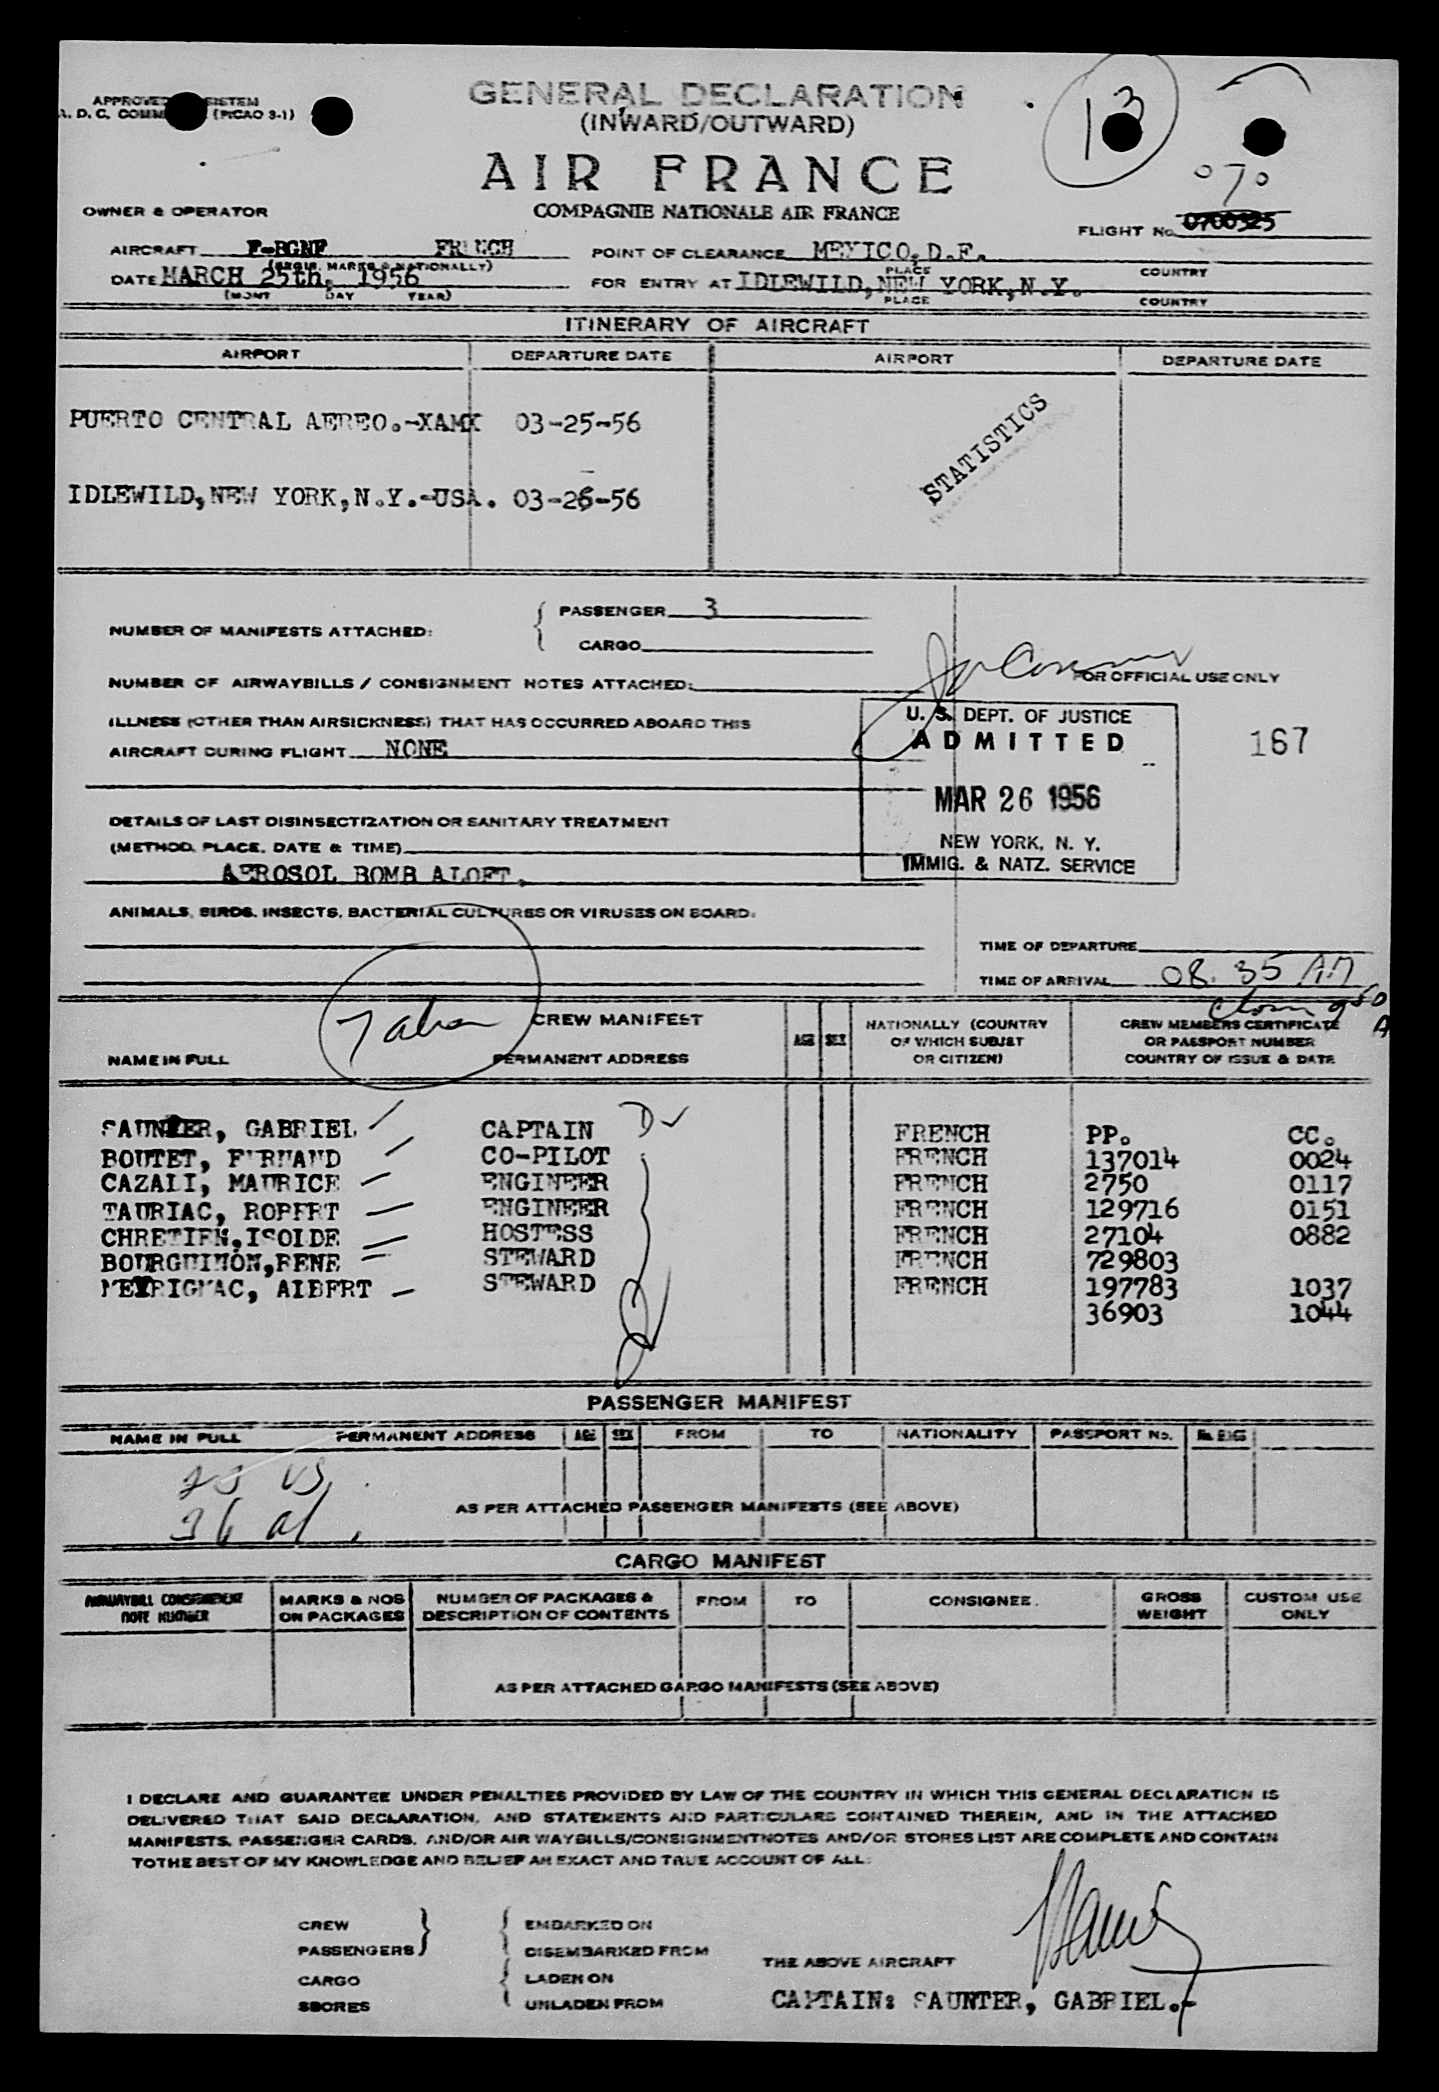 GENERAL DECLARATION
(INWARD/OUTWARD)
AIR FRANCE
COMPAGNIE NATIONALE AIR FRANCE
13
070
OWNER & OPERATOR
FLIGHT No. 0700325
AIRCRAFT F-BGNF FRENCH
(REGIS. MARKS & NATIONALLY)
POINT OF CLEARANCE MEXICO, D.F.
PLACE COUNTRY
DATE MARCH 25th, 1956
(MONT DAY YEAR)
FOR ENTRY AT IDLEWILD, NEW YORK, N.Y.
PLACE COUNTRY
ITINERARY OF AIRCRAFT
AIRPORT DEPARTURE DATE AIRPORT DEPARTURE DATE
PUERTO CENTRAL AEREO.-XAMX 03-25-56
STATISTICS
IDLEWILD, NEW YORK, N.Y.-USA. 03-26-56
NUMBER OF MANIFESTS ATTACHED:
PASSENGER 3
CARGO
NUMBER OF AIRWAYBILLS / CONSIGNMENT NOTES ATTACHED:
FOR OFFICIAL USE ONLY
ILLNESS (OTHER THAN AIRSICKNESS) THAT HAS OCCURRED ABOARD THIS
AIRCRAFT DURING FLIGHT NONE
U. S. DEPT. OF JUSTICE
ADMITTED
MAR 26 1956
NEW YORK, N. Y.
IMMIG. & NATZ. SERVICE
167
DETAILS OF LAST DISINSECTIZATION OR SANITARY TREATMENT
(METHOD, PLACE, DATE & TIME)
AEROSOL BOMB ALOFT.
ANIMALS, BIRDS, INSECTS, BACTERIAL CULTURES OR VIRUSES ON BOARD:
TIME OF DEPARTURE
TIME OF ARRIVAL 08.35 AM
CREW MANIFEST
NAME IN FULL PERMANENT ADDRESS AGE SEX
NATIONALLY (COUNTRY
OF WHICH SUBJET
OR CITIZEN)
CREW MEMBERS CERTIFICATE
OR PASSPORT NUMBER
COUNTRY OF ISSUE & DATE
SAUNTER, GABRIEL CAPTAIN FRENCH PP. CC.
BOUTET, FERNAND CO-PILOT FRENCH 137014 0024
CAZALI, MAURICE ENGINEER FRENCH 2750 0117
TAURIAC, ROBERT ENGINEER FRENCH 129716 0151
CHRETIEN, ISOLDE HOSTESS FRENCH 27104 0882
BOURGUINON, RENE STEWARD FRENCH 729803
MEYRIGNAC, ALBERT STEWARD FRENCH 197783 1037
36903 1044
PASSENGER MANIFEST
NAME IN FULL PERMANENT ADDRESS AGE SEX FROM TO NATIONALITY PASSPORT No.
AS PER ATTACHED PASSENGER MANIFESTS (SEE ABOVE)
CARGO MANIFEST
AIRWAYBILL CONSIGNEMENT
NOTE NUMBER
MARKS & NOS
ON PACKAGES
NUMBER OF PACKAGES &
DESCRIPTION OF CONTENTS
FROM TO CONSIGNEE.
GROSS
WEIGHT
CUSTOM USE
ONLY
AS PER ATTACHED CARGO MANIFESTS (SEE ABOVE)
I DECLARE AND GUARANTEE UNDER PENALTIES PROVIDED BY LAW OF THE COUNTRY IN WHICH THIS GENERAL DECLARATION IS
DELIVERED THAT SAID DECLARATION, AND STATEMENTS AND PARTICULARS CONTAINED THEREIN, AND IN THE ATTACHED
MANIFESTS, PASSENGER CARDS, AND/OR AIR WAYBILLS/CONSIGNMENTNOTES AND/OR STORES LIST ARE COMPLETE AND CONTAIN
TOTHE BEST OF MY KNOWLEDGE AND BELIEF AN EXACT AND TRUE ACCOUNT OF ALL:
CREW
PASSENGERS
CARGO
SBORES
EMBARKED ON
DISEMBARKED FROM
LADEN ON
UNLADEN FROM
THE ABOVE AIRCRAFT
CAPTAIN: SAUNTER, GABRIEL.-